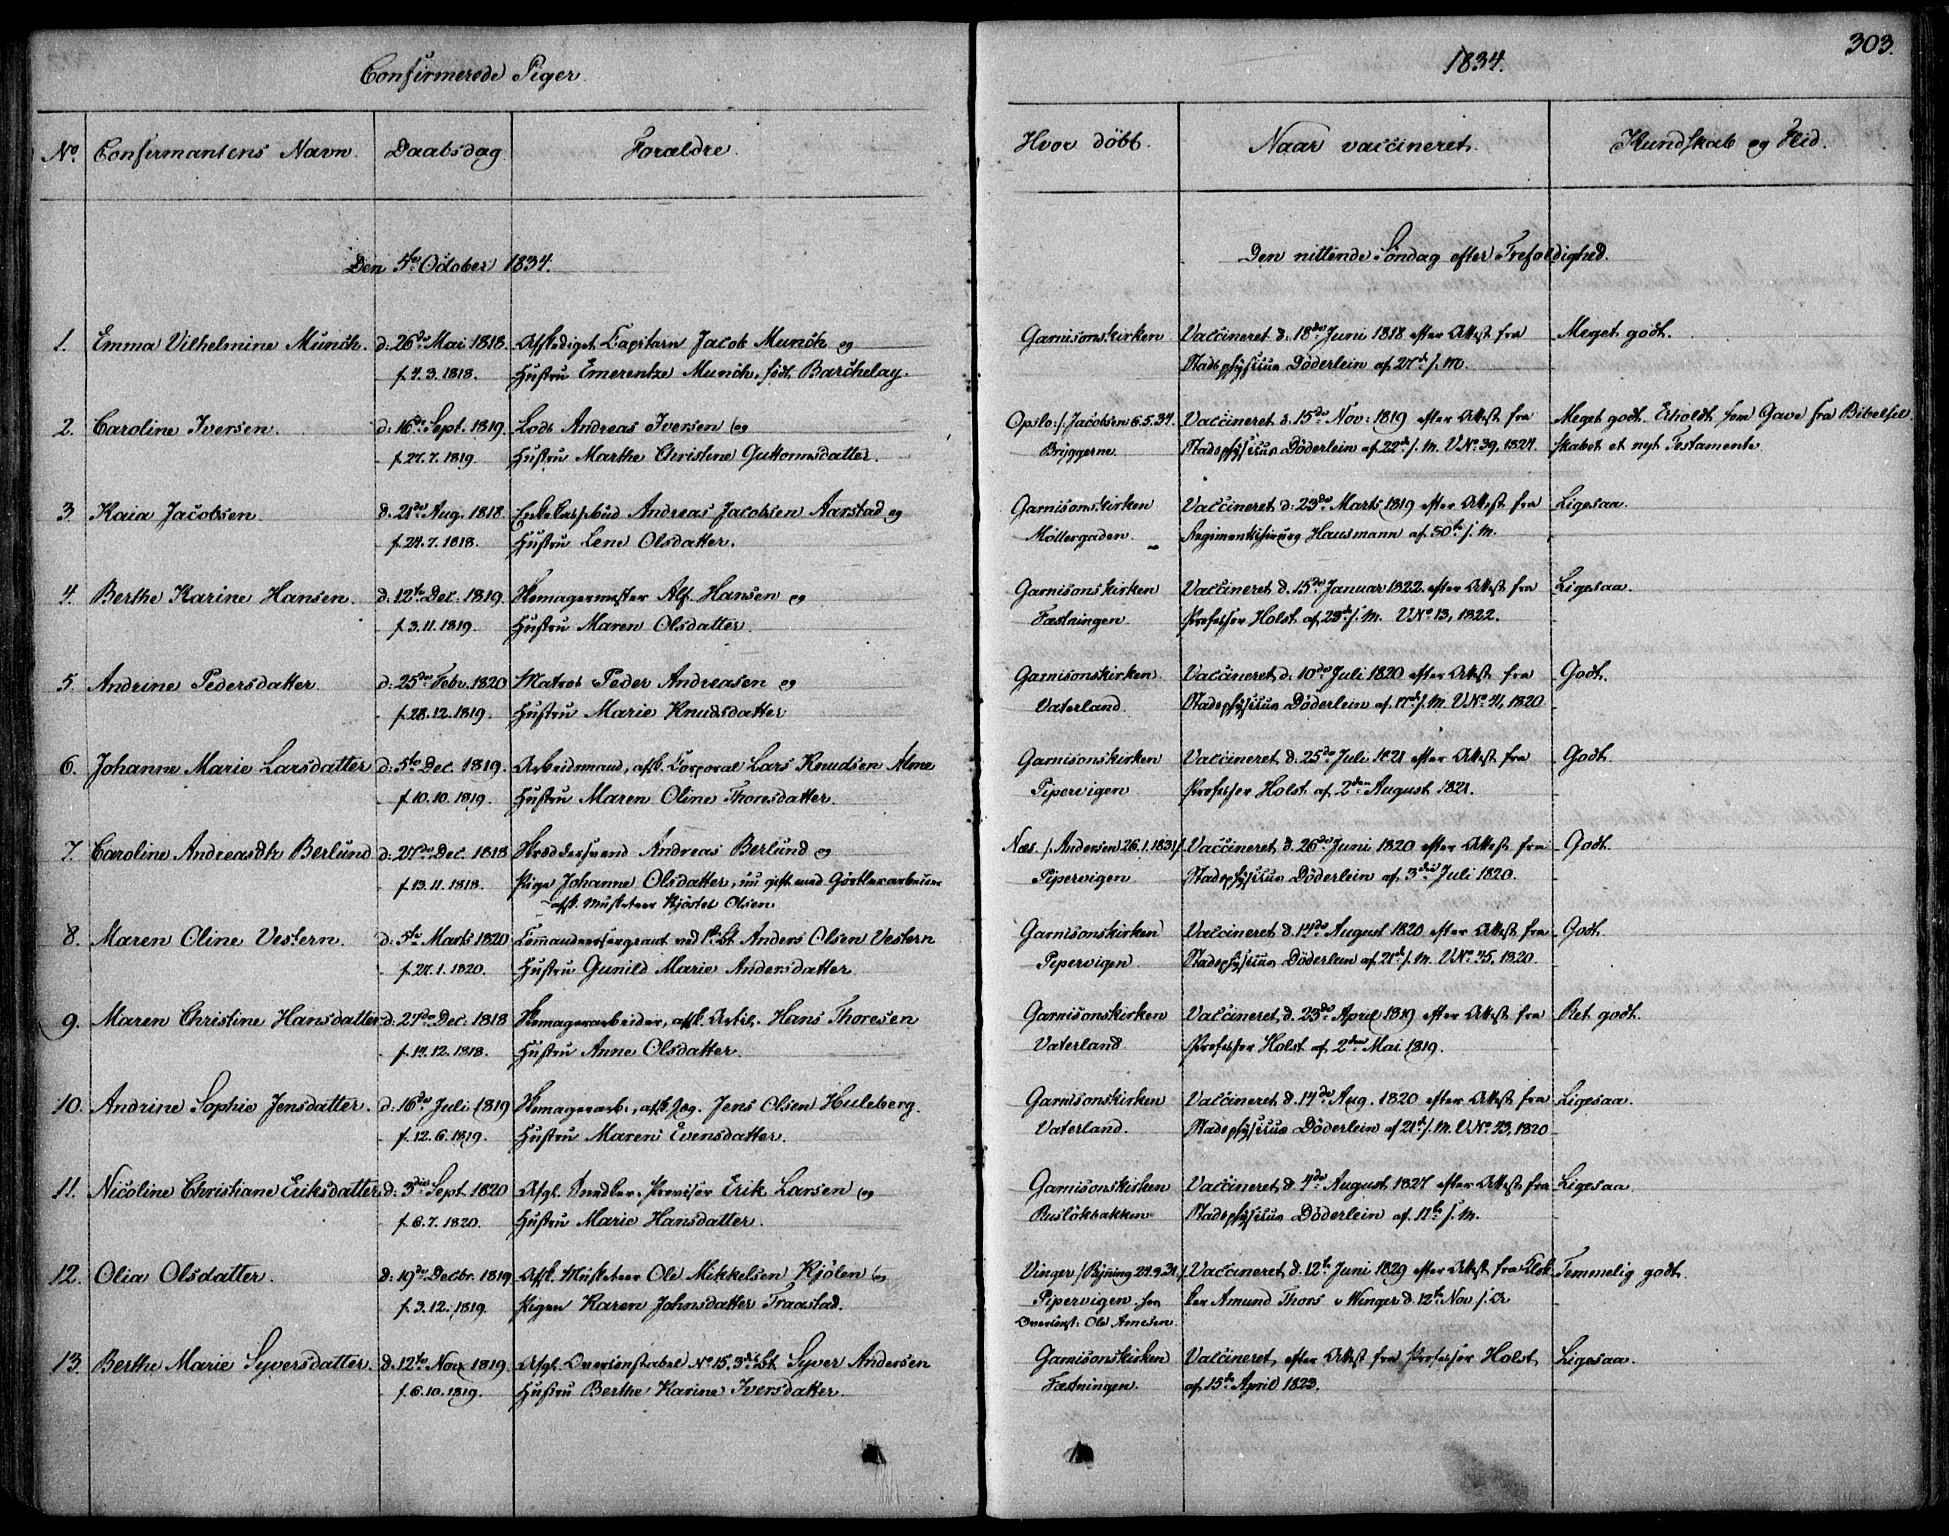 303.
Confirmerede Piger.
1834.
No. Confirmantens Navn. Daabsdag. Forældre. Hvor döbt. Naar vaccineret. Kundskab og Flid.
Den 5te October 1834. Den nittende Söndag efter Trefoldighed.
1. Emma Vilhelmine Munch. d. 26de Mai 1818. Afskediget Capitain Jacob Munch og Garnisonskirken Vaccineret d. 18de Juni 1818 efter Attest fra Meget godt.
f. 4.3.1818. Hustru Emerentze Munch, født Barchelay. Stadsphysicus Döderlein af 27de s.M.
2. Caroline Iversen. d. 16de Sept. 1819. Lods Andreas Iversen og Opslo :/ Jacobsen 6.5.34. Vaccineret d. 15de Nov: 1819 efter Attest fra Meget godt. Erholdt som Gave fra Bibelsel-
f. 27.7.1819. Hustru Marthe Christine Guttormsdatter. Bryggerne Stadsphysicus Döderlein af 22de s.M. V.No. 39, 1824. skabet et nyt Testamente
3. Kaia Jacobsen. d. 21de Aug. 1818. Andreas Jacobsen Aarstad og Garnisonskirken Vaccineret d. 23de Marts 1819 efter Attest fra Ligesaa.
f. 24.7.1818. Hustru Lene Olsdatter. Möllergaden. Regimentschirurg Hausmann af 30te s.M.
4. Berthe Karine Hansen. d. 12te Dec. 1819. Skomagermester Alf Hansen og Garnisonskirken Vaccineret d. 15de Januar 1822 efter Attest fra Ligesaa.
f. 3.11.1819. Hustru Maren Olsdatter. Fæstningen. Professor Holst af 23de s.M. V.No. 13, 1822.
5. Andrine Pedersdatter. d. 25de Febr. 1820 Matros Peder Andreasen og Garnisonskirken Vaccineret d. 10de Juli 1820 efter Attest fra Godt.
f. 28.12.1819. Hustru Marie Knudsdatter Vaterland. Stadsphysicus Döderlein af 17de s.M. V.No. 41, 1820
6. Johanne Marie Larsdatter d. 5te Dec. 1819. Arbeidsmand, afsk. Corporal Lars Knudsen Alme Garnisonskirken Vaccineret d. 25de Juli 1821 efter Attest fra Godt.
f. 10.10.1819. Hustru Maren Oline Thoresdatter. Pipervigen. Professor Holst af 2den August 1821.
7. Caroline Andreasdtr Berlund d. 27de Dec. 1818 Skræddersvend Andreas Berlund og Næs /: Andersen 26.1.1831 :/ Vaccineret d. 26de Juni 1820 efter Attest fra Godt.
f. 13.11.1818. Pige Johanne Olsdatter, nu gift med Görtlerarbeider Pipervigen Stadsphysicus Döderlein af 3die Juli 1820.
afsk. Musketeer Kjöstel Olsen
8. Maren Oline Vestern. d. 5te Marts 1820 Commandeersergeant ved Anders Olsen Vestern Garnisonskirken Vaccineret d. 14de August 1820 efter Attest fra Godt.
f. 27.1.1820. Hustru Gunild Marie Andersdatter Pipervigen. Stadsphysicus Döderlein af 21de s.M. V.No. 45, 1820.
9. Maren Christine Hansdatter d. 27de Dec. 1818 Skomagerarbeider, afsk. Artil. Hans Thoresen Garnisonskirken Vaccineret d. 23de April 1819 efter Attest fra Ret godt.
f. 14.12.1818. Hustru Anne Olsdatter. Vaterland Professor Holst af 2den Mai 1819.
10. Andrine Sophie Jensdatter. d. 16de Juli 1819 Skomagerarb., afsk. Jæg. Jens Olsen Huleberg. Garnisonskirken Vaccineret d. 14de Aug. 1820 efter Attest fra Ligesaa.
f. 12.6.1819. Hustru Maren Evensdatter. Vaterland. Stadsphysicus Döderlein af 21de s.M. V.No. 43, 1820
11. Nicoline Christiane Eriksdatter d. 3die Sept. 1820 Afgl. Erik Larsen og Garnisonskirken Vaccineret d. 4de August 1827 efter Attest fra Ligesaa
f. 6.7.1820. Hustru Marie Hansdatter. Ruslökbakken Stadsphysicus Döderlein af 11te s.M.
12. Olia Olsdatter. d. 19de Decbr. 1819 Afsk. Musketeer Ole Mikkelsen Kjölen og Vinger /: Ryning 24.9.31 :/ Vaccineret d. 12te Juni 1829 efter Attest fra Klok- Temmelig godt.
f. 3.12.1819. Pigen Karen Johnsdatter Traastad. Pipervigen hos ker Amund Thors. v Winger d. 12te Nov s.A
Ole Arnesen.
13. Berthe Marie Syversdatter. d. 12te Nov. 1819. Afgl. Overconstabel No. 15, Syver Andersen Garnisonskirken Vaccineret, efter Attest fra Professor Holst Ligesaa.
f. 6.10.1819. Hustru Berthe Karine Iversdatter. Fæstningen. af 15de April 1823.